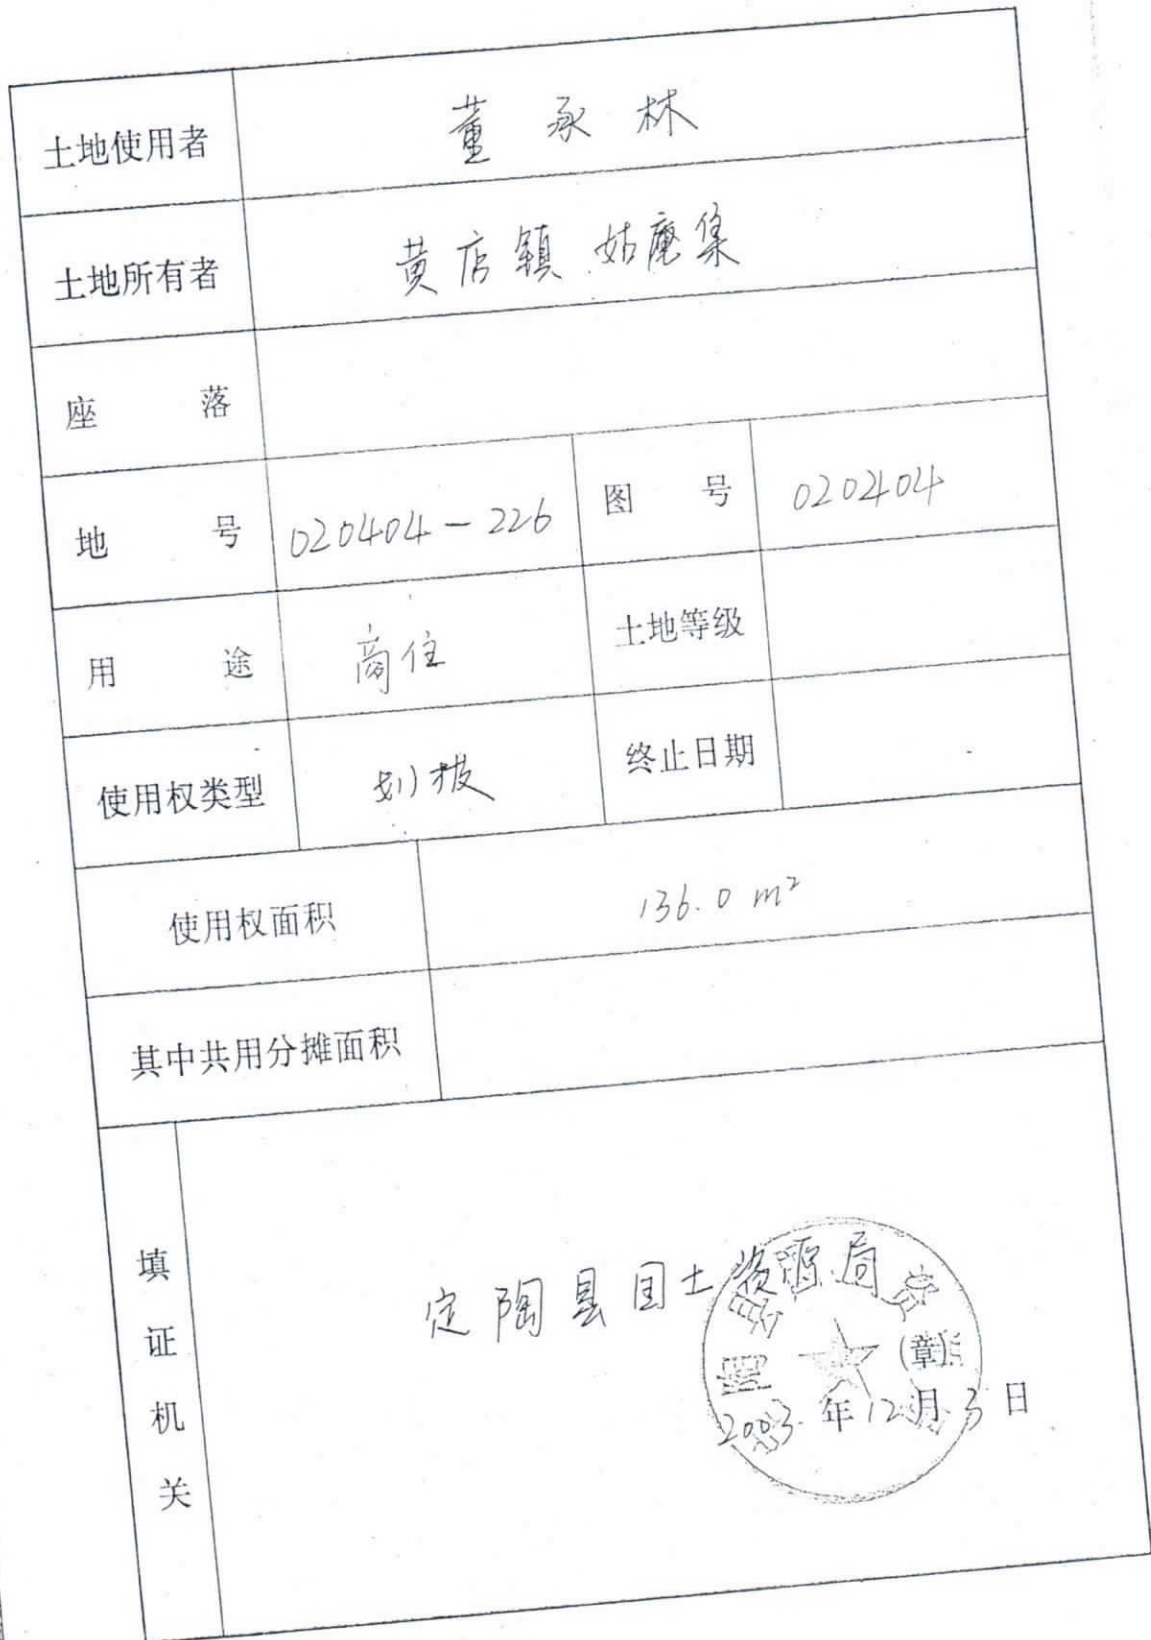 土地使用者 董承林
土地所有者 黄店镇 姑庵集
座 落
地 号 020404-226 图 号 020404
用 途 商住 土地等级
使用权类型 划拨 终止日期
使用权面积 136.0 m²
其中共用分摊面积
填证机关
定陶县国土资源局
(章)
2003年12月3日